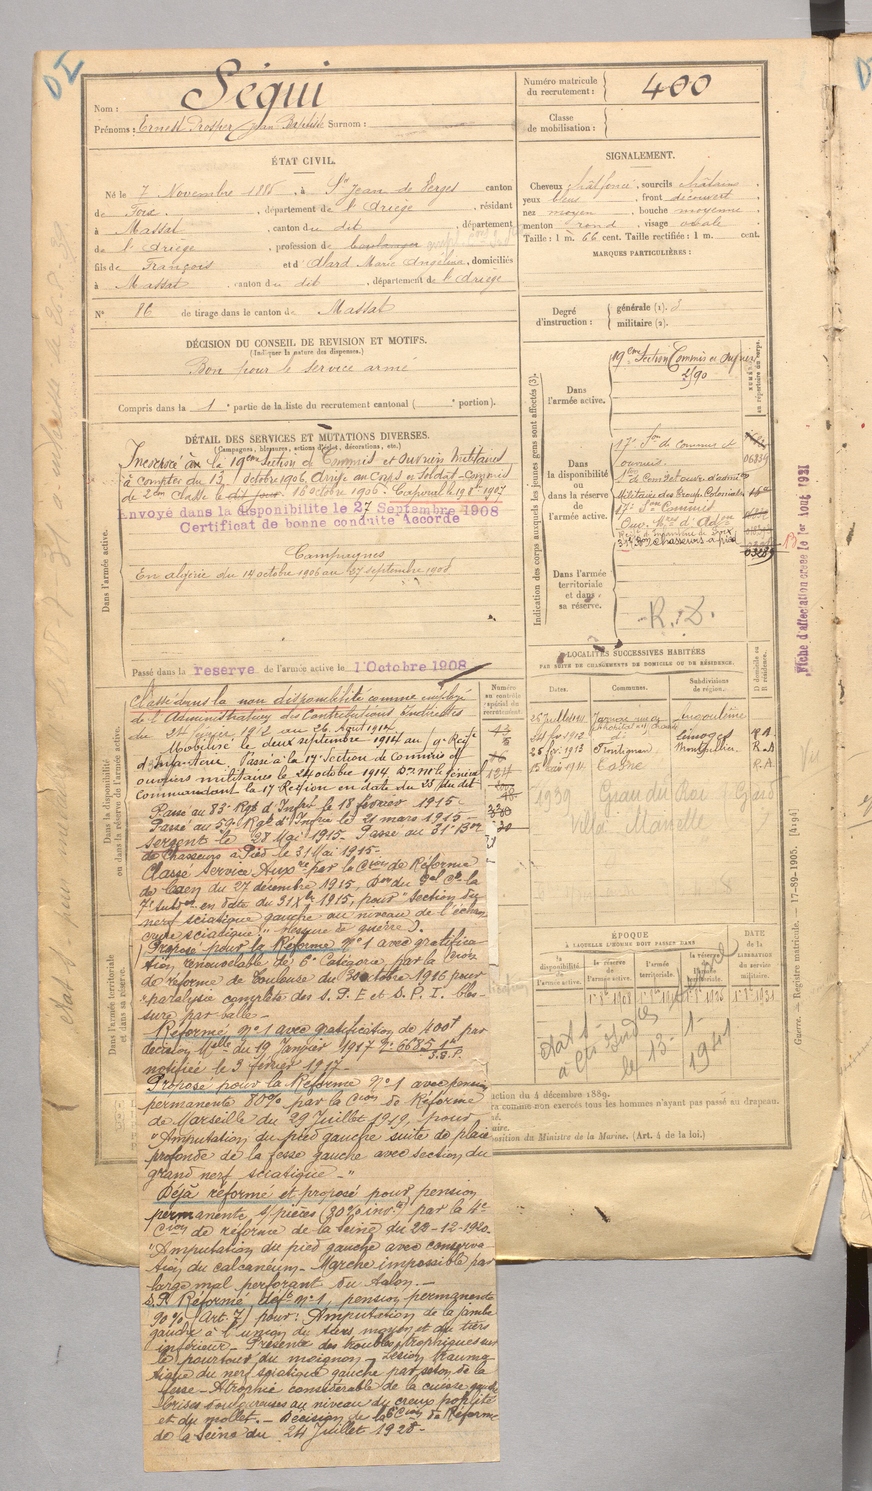 D I
Nom : Ségui
Prénoms : Ernest Prosper Jean Baptiste Surnom :
Numéro matricule du recrutement : 400
Classe de mobilisation :
ÉTAT CIVIL.
Né le 7 Novembre 1885, à St Jean de Verges canton
de Foix, département de l'Ariège, résidant
à Massat, canton du dit, département
de l'Ariège, profession de boulanger
fils de François et d'Alard Marie Angelina, domiciliés
à Massat, canton du dit, département de l'Ariège
N° 86 de tirage dans le canton de Massat
SIGNALEMENT.
Cheveux chât foncé, sourcils châtains
yeux bleus, front découvert
nez moyen, bouche moyenne
menton rond, visage ovale
Taille : 1 m. 66 cent. Taille rectifiée : 1 m. cent.
MARQUES PARTICULIÈRES :
Degré d'instruction : générale (1). 3
militaire (2).
DÉCISION DU CONSEIL DE REVISION ET MOTIFS.
(Indiquer la nature des dispenses.)
Bon pour le service armé
Compris dans la 1e partie de la liste du recrutement cantonal ( e portion).
DÉTAIL DES SERVICES ET MUTATIONS DIVERSES.
(Campagnes, blessures, actions d'éclat, décorations, etc.)
Dans l'armée active.
Incorporé à la 19ème Section de Commis et Ouvriers Militaires
à compter du 13 octobre 1906, Arrivé au Corps et Soldat-Commis
de 2ème Classe le dit jour 16 octobre 1906. Caporal le 19 8bre 1907
Envoyé dans la disponibilité le 27 Septembre 1908
Certificat de bonne conduite Accordé
Campagnes
En algérie du 14 octobre 1906 au 27 septembre 1908
Passé dans la reserve de l'armée active le 1 Octobre 1908
Indication des corps auxquels les jeunes gens sont affectés (3).
Dans l'armée active.
19ème Section Commis et Ouvriers
2/90
Dans la disponibilité ou dans la réserve de l'armée active.
17e Son de Commis et
ouvriers
Militaire des Troup. Coloniales
17e Son Commis
Ouv. Mres d'Adon
31e Bon Chasseurs à pied
06839
03289
Dans l'armée territoriale et dans sa réserve.
R.D.
Fiche d'affectation créée le 1er Aout 1931
LOCALITÉS SUCCESSIVES HABITÉES
PAR SUITE DE CHANGEMENTS DE DOMICILE OU DE RÉSIDENCE.
Dates. Communes. Subdivisions de région. D domicile ou R résidence.
Angoulême
24 fév 1912 di Limoges R.A.
26 fév 1913 Frontignan Montpellier R.A
1914 R.A.
1939 Grau du Roi Gard
Villa
Dans la disponibilité ou dans la réserve de l'armée active.
Numéro au contrôle spécial du recrutement.
Classé dans la non disponibilité comme employé
de l'Administration des Contributions Indirectes
du 24 février 1912 au 26 Août 1914
Mobilisé le deux septembre 1914 au 9e Regt
d'Infanterie. Passé à la 17e Section de Commis et
ouvriers militaires le 24 octobre 1914 Don Mr le Général
Commandant la 17 Région en date du 23 du dit
Passé au 83e Rgt d'Infrie le 18 février 1915-
Passé au 59e Rgt d'Infrie le 21 mars 1915-
sergent le 28 Mai 1915. Passé au 31e Bon
de Chasseurs à Pied le 31 Mai 1915-
Classé Service Auxre par la Cion de Réforme
de Caen du 27 décembre 1915, Don du Gal Ct la
7e Subon en date du 31 Xbre 1915, pour "Section du
nerf sciatique gauche au niveau de l'échan
crure sciatique" blessure de guerre).
Proposé pour la Réforme N°1 avec gratifica
tion renouvelable de 6e Catégorie par la Cion
de réforme de Toulouse du 3 octobre 1916 pour
"paralysie complète des s. P. E et S. P. I. bles-
sure par balle -
Réformé n°1 avec gratification de 400f par
décision Mlle du 19 Janvier 1917 N° 6685
notifiée le 3 février 1917-
Proposé pour la Réforme N°1 avec pension
permanente 80% par la Cion de Réforme
de Marseille du 29 Juillet 1919, pour
"Amputation du pied gauche suite de plaie
profonde de la fesse gauche avec section du
grand nerf sciatique -"
Déjà réformé et proposé pour pension
permanente s/pièces (80% invté) par la 4e
Cion de réforme de la Seine du 22-12-1920
"Amputation du pied gauche avec conserva
tion du calcanéum. Marche impossible par
large mal perforant du talon. -
S.P. Réformé déft n°1, pension permanente
90% (Art. 7) pour : Amputation de la jambe
gauche à l'union du tiers moyen et du tiers
inférieur - Présente des troubles trophiques sur
le pourtour du moignon - Lésion trauma-
tique du nerf sciatique gauche par séton de la
fesse - Atrophie considérable de la cuisse gauche
névrites douloureuses au niveau du creux poplité
et du mollet. - Décision de la 6e Cion de Réforme
de la Seine du 24 Juillet 1928-
Dans l'armée territoriale et dans sa réserve.
ÉPOQUE
À LAQUELLE L'HOMME DOIT PASSER DANS
la disponibilité de l'armée active. la réserve de l'armée active. l'armée territoriale. la réserve de l'armée territoriale.
DATE de la LIBÉRATION du service militaire.
ction du 4 décembre 1889.
ra comme non exercés tous les hommes n'ayant pas passé au drapeau.
osition du Ministre de la Marine. (Art. 4 de la loi.)
Guerre. — Registre matricule. — 17-89-1905. [4194]